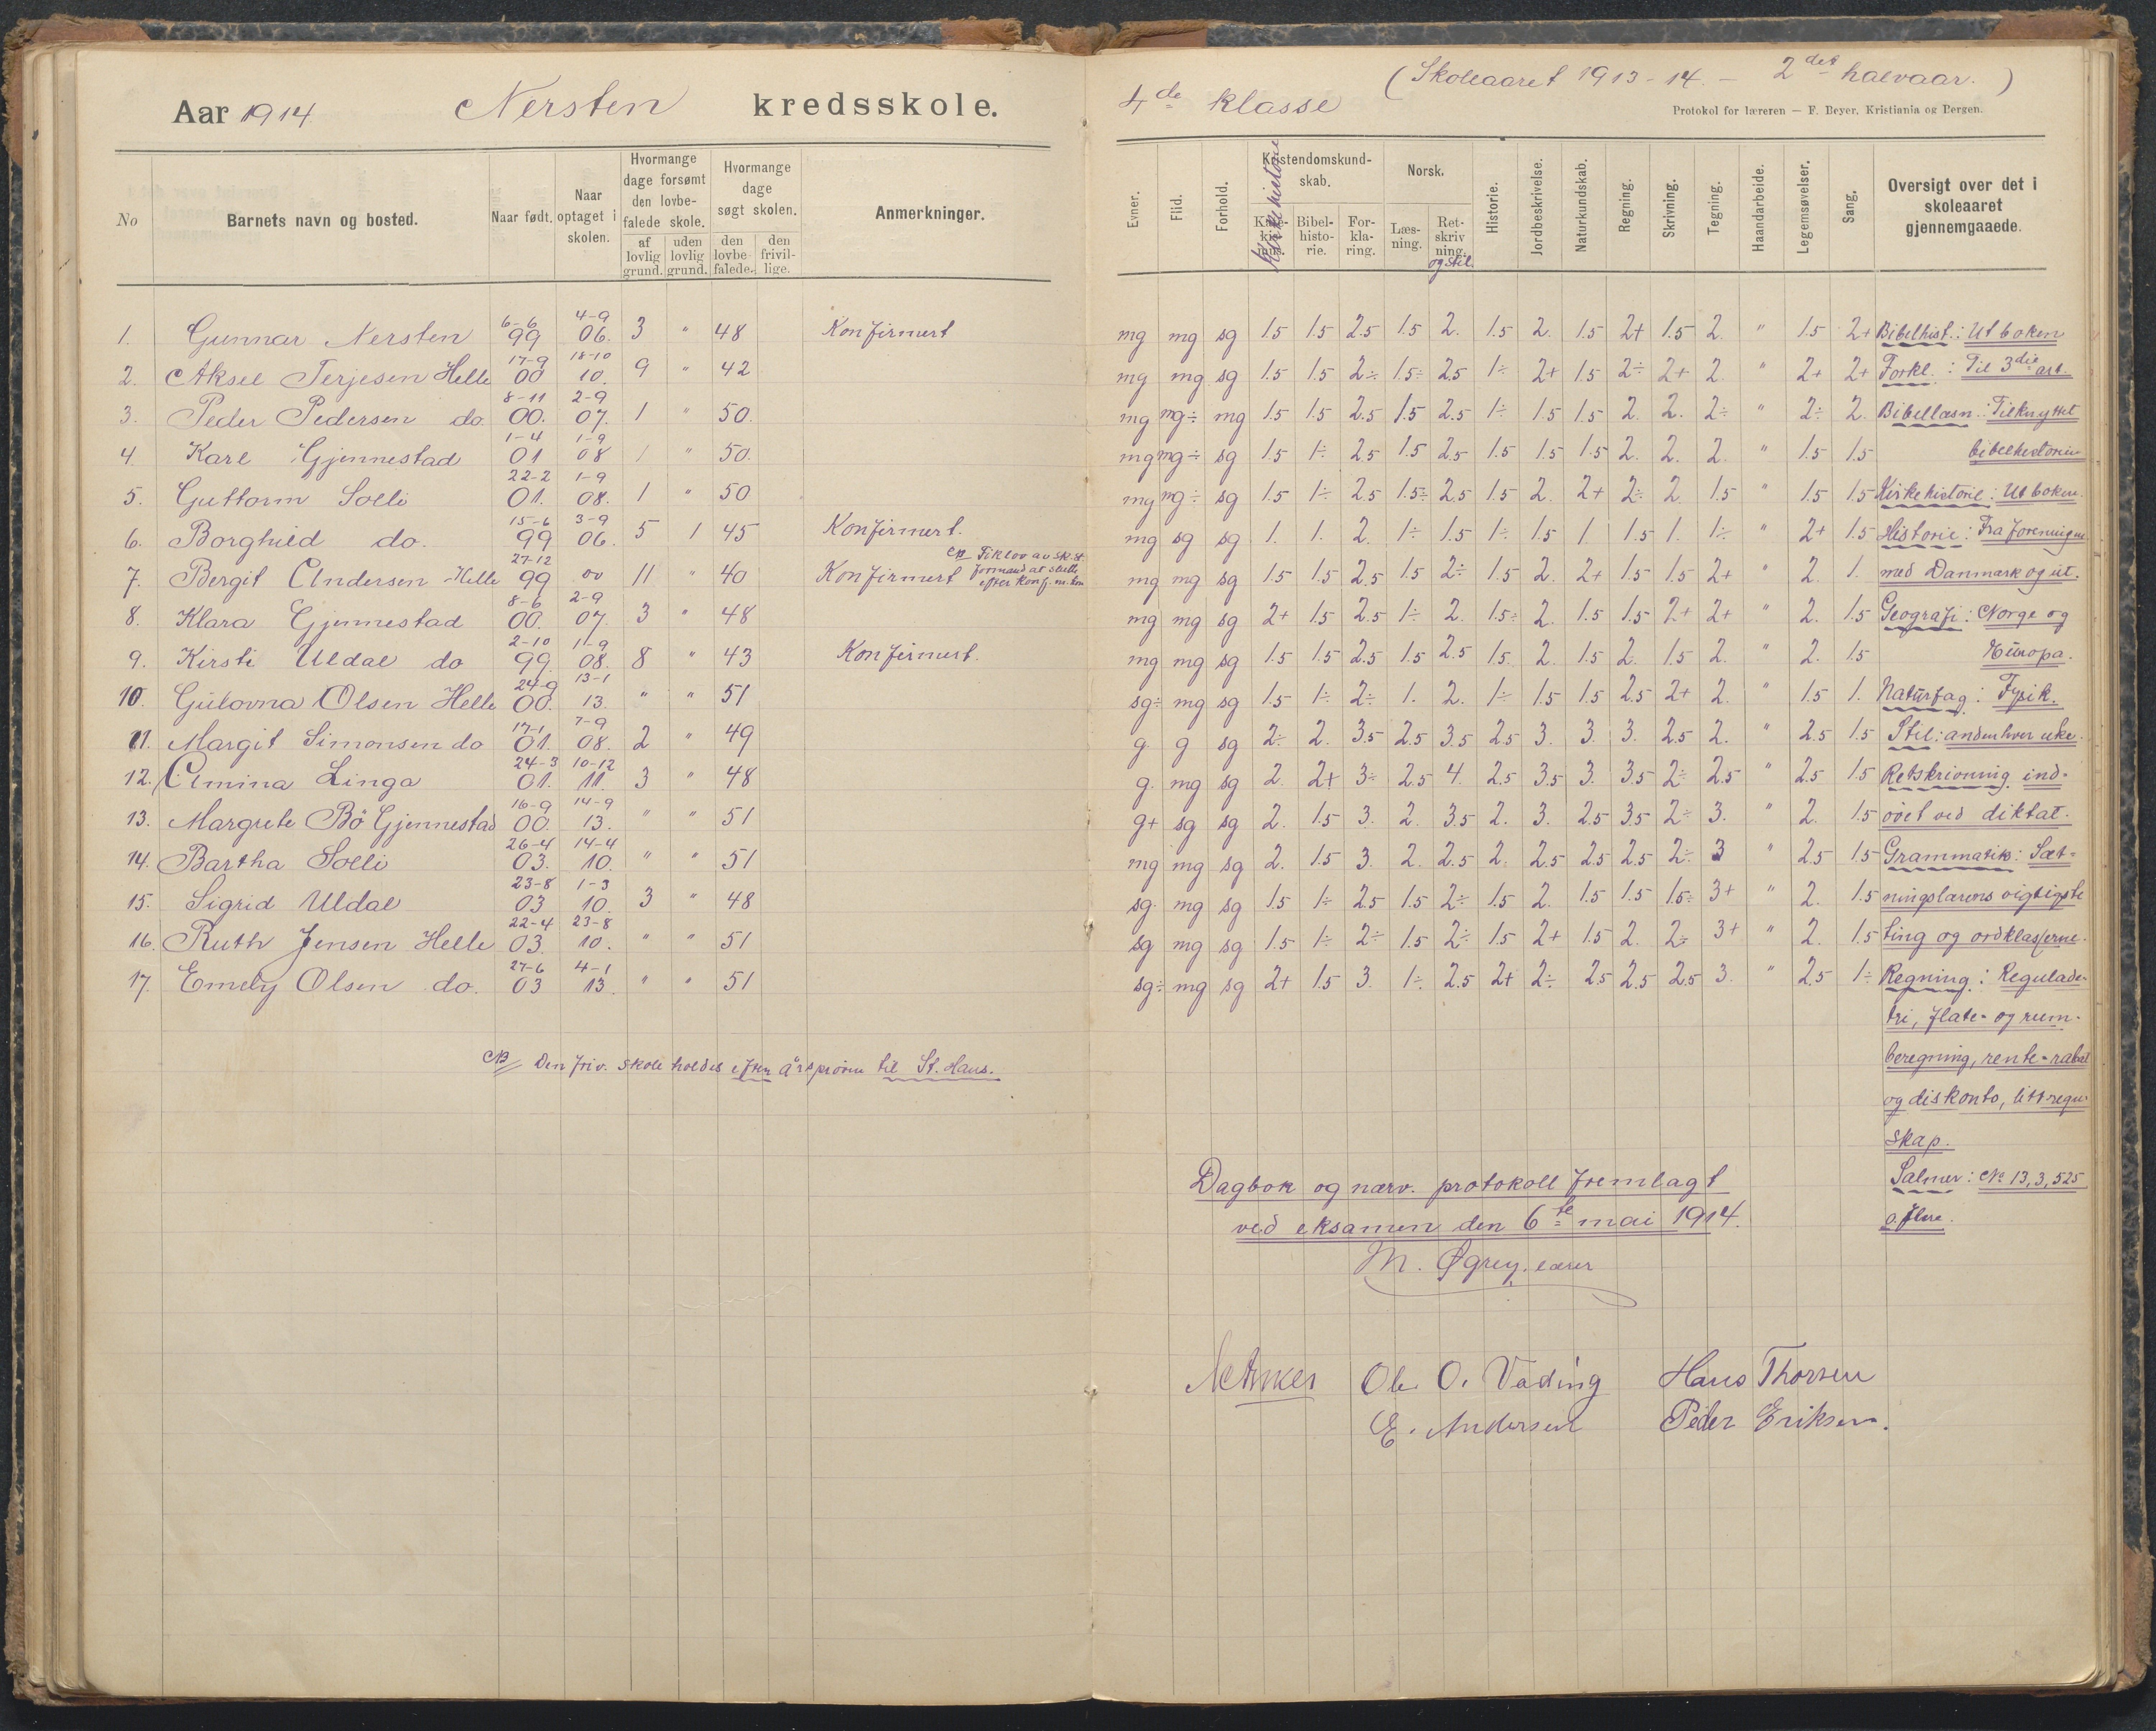 Aar 1914 Nersten kredsskole.
No
Barnets navn og bosted.
Naar født.
Naar optaget i skolen.
Hvormange dage forsømt den lovbefalede skole.
af lovlig grund.
uden lovlig grund.
Hvormange dage søgt skolen.
den lovbefalede.
den frivillige.
Anmerkninger.
1. Gunnar Nersten 6-6 99 4-9 06. 3 " 48 Konfirmert
2. Aksel Terjesen Helle 17-9 00 18-10 10. 9 " 42
3. Peder Pedersen do. 8-11 00. 2-9 07. 1 " 50.
4. Karl Gjennestad 1-4 01 1-9 08 1 " 50.
5. Guttorm Solli 22-2 01. 1-9 08. 1 " 50
6. Borghild do. 15-6 99 3-9 06. 5 1 45 Konfirmert.
7. Bergit Andersen Helle 27-12 99 oo 11 " 40 Konfirmert NB Fik lov av sk.st. formand at slutte efter konf.
8. Klara Gjennestad 8-6 00. 2-9 07. 3 " 48
9. Kirsti Uldal do 2-10 99. 11-9 08. 8 " 43 Konfirmert.
10. Gulovna Olsen Helle 24-9 00. 13-1 13. " " 51
11. Margit Simonsen do 17-1 01. 7-9 08. 2 " 49
12. Amina Linga 24-3 01. 10-12 11. 3 " 48
13. Margrete Bö Gjennestad 16-9 00. 14-9 13. " " 51
14. Bartha Solli 26-4 03. 14-4 10. " " 51
15. Sigrid Uldal 23-8 03 1-3 10. 3 " 48
16. Ruth Jensen Helle 22-4 03. 23-8 10. " " 51
17. Emely Olsen do. 27-6 03 4-1 13 " " 51
NB Den friv. skole holdes efter årsprøven til St. Hans.
4de klasse (Skoleaaret 1913-14. - 2det halvaar.)
Protokol for læreren — F. Beyer, Kristiania og Bergen.
Evner.
Flid.
Forhold.
Kristendomskundskab.
Kirkehistorie
Bibelhistorie.
Forklaring.
Norsk.
Læsning.
Retskrivning. og stil.
Historie.
Jordbeskrivelse.
Naturkundskab.
Regning.
Skrivning.
Tegning.
Haandarbeide.
Legemsøvelser.
Sang.
Oversigt over det i skoleaaret gjennemgaaede.
mg mg sg 1.5 1.5 2.5 1.5 2. 1.5 2. 1.5 2+ 1.5 2. " 1.5 2+ Bibelhist.: Ut boken
mg mg sg 1.5 1.5 2÷ 1.5÷ 2.5 1÷ 2+ 1.5 2÷ 2+ 2. " 2+ 2+ Forkl.: Til 3die art.
mg mg÷ mg 1.5 1.5 2.5 1.5 2.5 1÷ 1.5 1.5 2. 2. 2÷ " 2÷ 2. Bibellæsn.: Tilknyttet
mg mg÷ sg 1.5 1÷ 2.5 1.5 2.5 1.5 1.5 1.5 2. 2. 2. " 1.5 1.5 bibelhistorien
mg mg÷ sg 1.5 1÷ 2.5 1.5÷ 2.5 1.5 2. 2+ 2÷ 2 1.5 " 1.5 1.5 Kirkehistorie: Ut boken.
mg sg sg 1. 1. 2. 1÷ 1.5 1÷ 1.5 1 1.5 1. 1÷ " 2+ 1.5 Historie: Fra foreningen
mg mg sg 1.5 1.5 2.5 1.5 2÷ 1.5 2. 2+ 1.5 1.5 2+ " 2. 1. med Danmark og ut.
mg mg sg 2+ 1.5 2.5 1÷ 2. 1.5÷ 2. 1.5 1.5 2+ 2+ " 2. 1.5 Geografi: Norge og
mg mg sg 1.5 1.5 2.5 1.5 2.5 1.5. 2. 1.5 2. 1.5 2. " 2. 1.5 Europa.
sg÷ mg sg 1.5 1÷ 2÷ 1. 2. 1÷ 1.5 1.5 2.5 2+ 2. " 1.5 1. Naturfag: Fysik.
g g sg 2÷ 2. 3.5 2.5 3.5 2.5 3. 3. 3. 2.5 2. " 2.5 1.5 Stil: andenhver uke.
g. mg sg 2. 2+ 3÷ 2.5 4. 2.5 3.5 3. 3.5 2÷ 2.5 " 2.5 1.5 Retskrivning ind-
g+ sg sg 2. 1.5 3. 2. 3.5 2. 3. 2.5 3.5 2÷ 3. " 2. 1.5 øvet ved diktat.
mg mg sg 2. 1.5 3. 2. 2.5 2. 2.5 2.5 2.5 2÷ 3 " 2.5 1.5 Grammatik: Sæt-
sg. mg sg 1.5 1÷ 2.5 1.5 2÷ 1.5 2. 1.5 1.5 1.5÷ 3+ " 2. 1.5 ningslærens vigtigste
sg mg sg 1.5 1÷ 2÷ 1.5 2÷ 1.5 2+ 1.5 2. 2÷ 3+ " 2. 1.5 ting og ordklasserne.
sg÷ mg sg 2+ 1.5 3. 1÷ 2.5 2+ 2÷ 2.5 2.5 2.5 3. " 2.5 1÷ Regning: Regulade-
tri, flate- og rum-
beregning, rente- rabat
og diskonto, litt regn-
skap.
Salmer: No 13, 3, 525
o. flere.
Dagbok og nærv. protokoll fremlagt
ved eksamen den 6te mai 1914.
M. Øgrey. lærer
Ole O. Våding Hans Thorsen
E. Andersen Peder Eriksen.